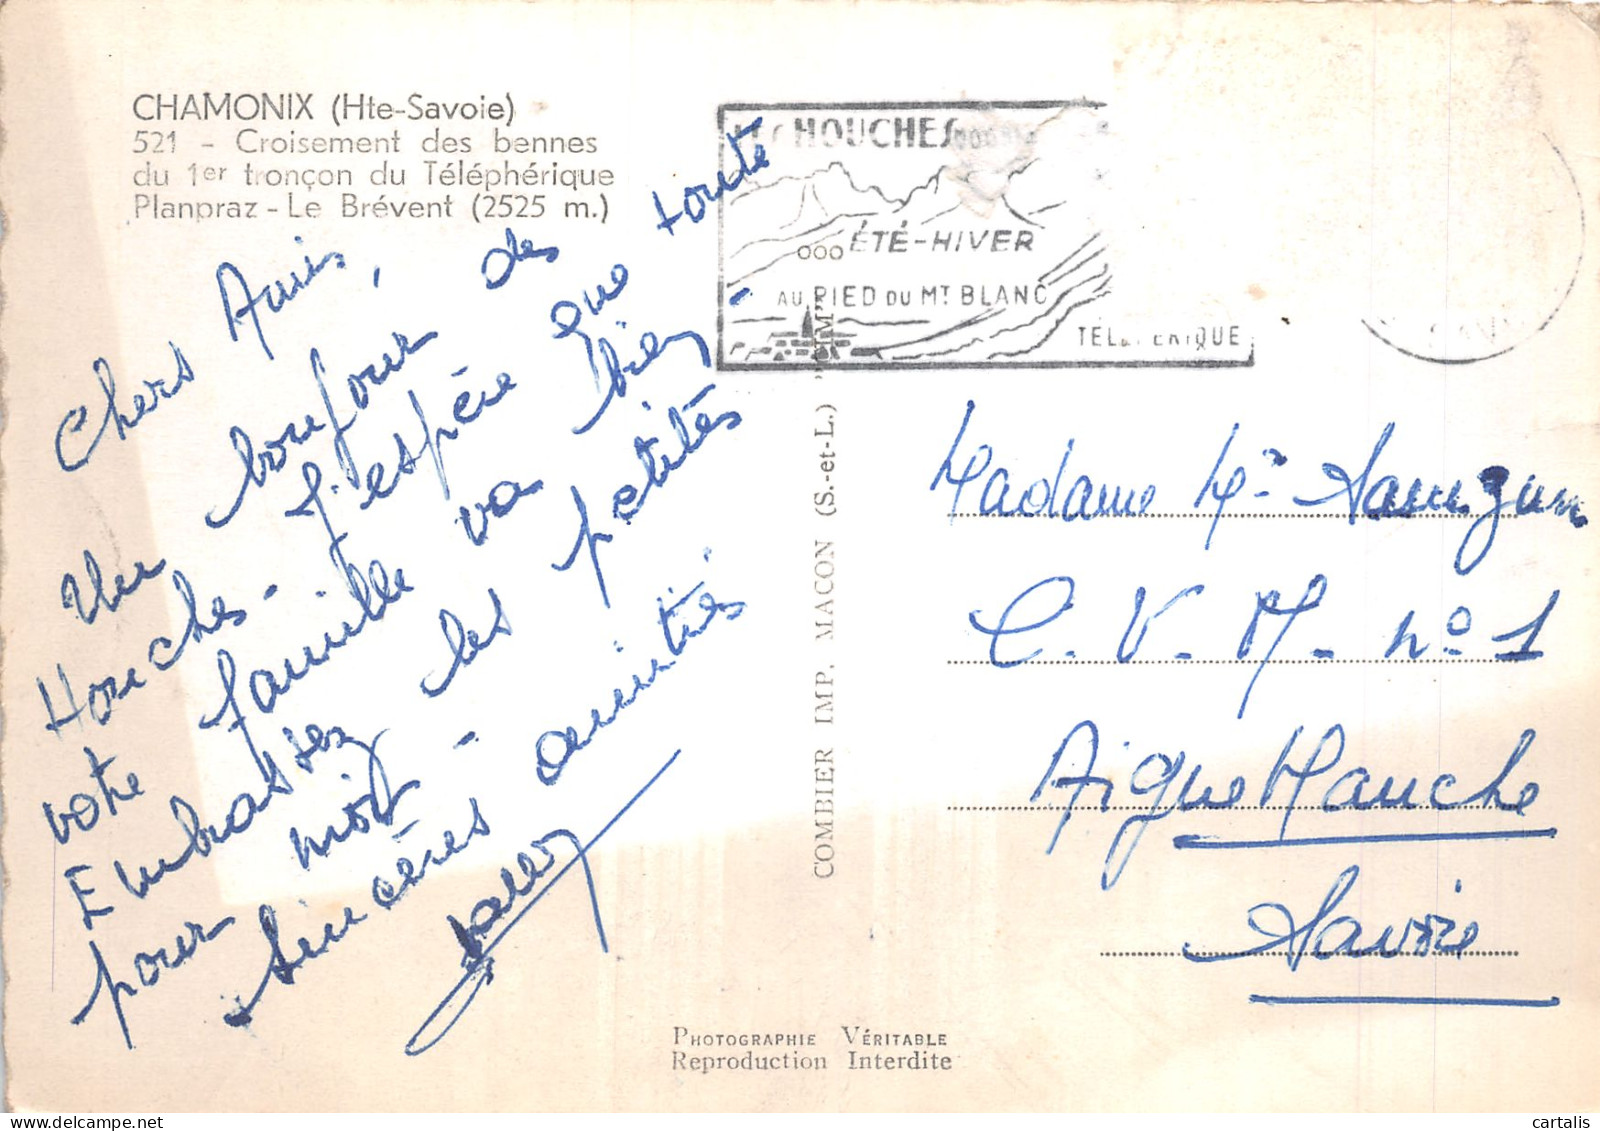 CHAMONIX (Hte-Savoie)
521 - Croisement des bennes
du 1er tronçon du Téléphérique
Planpraz - Le Brévent (2525 m.)
Chers Amis,
Un bonjour des
Houches - J'espère que toute
votre famille va bien -
Embrassez les petites
pour moi -
Sincères amitiés
LES HOUCHES
ÉTÉ-HIVER
AU PIED DU MT BLANC
TÉLÉPHÉRIQUE
COMBIER IMP. MACON (S.-et-L.)
Madame
C.V.M. n° 1
Aigueblanche
Savoie
PHOTOGRAPHIE VÉRITABLE
Reproduction Interdite
cartalis